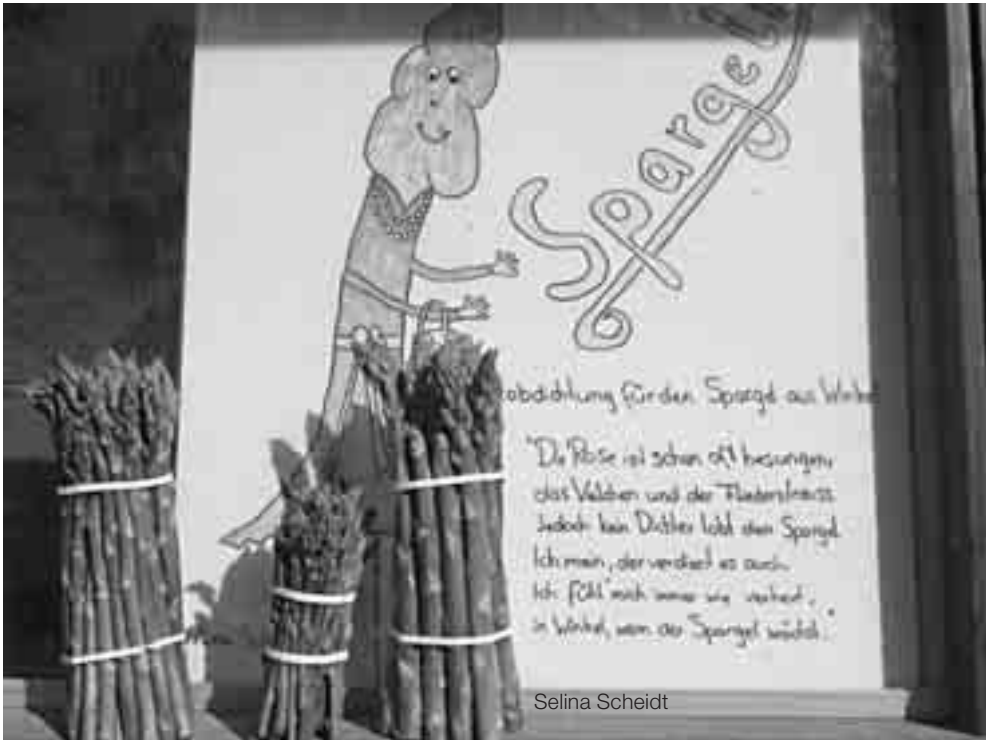 Spargel
für den Spargel aus Winkel
"Die Rose ist schon oft besungen,
das Veilchen und der Fliederstrauss
Jedoch kein Dichter lobt den Spargel
Ich mein, der verdient es auch.
Ich fühl' mich immer wie verhext,
in Winkel, wenn der Spargel wächst."
Selina Scheidt